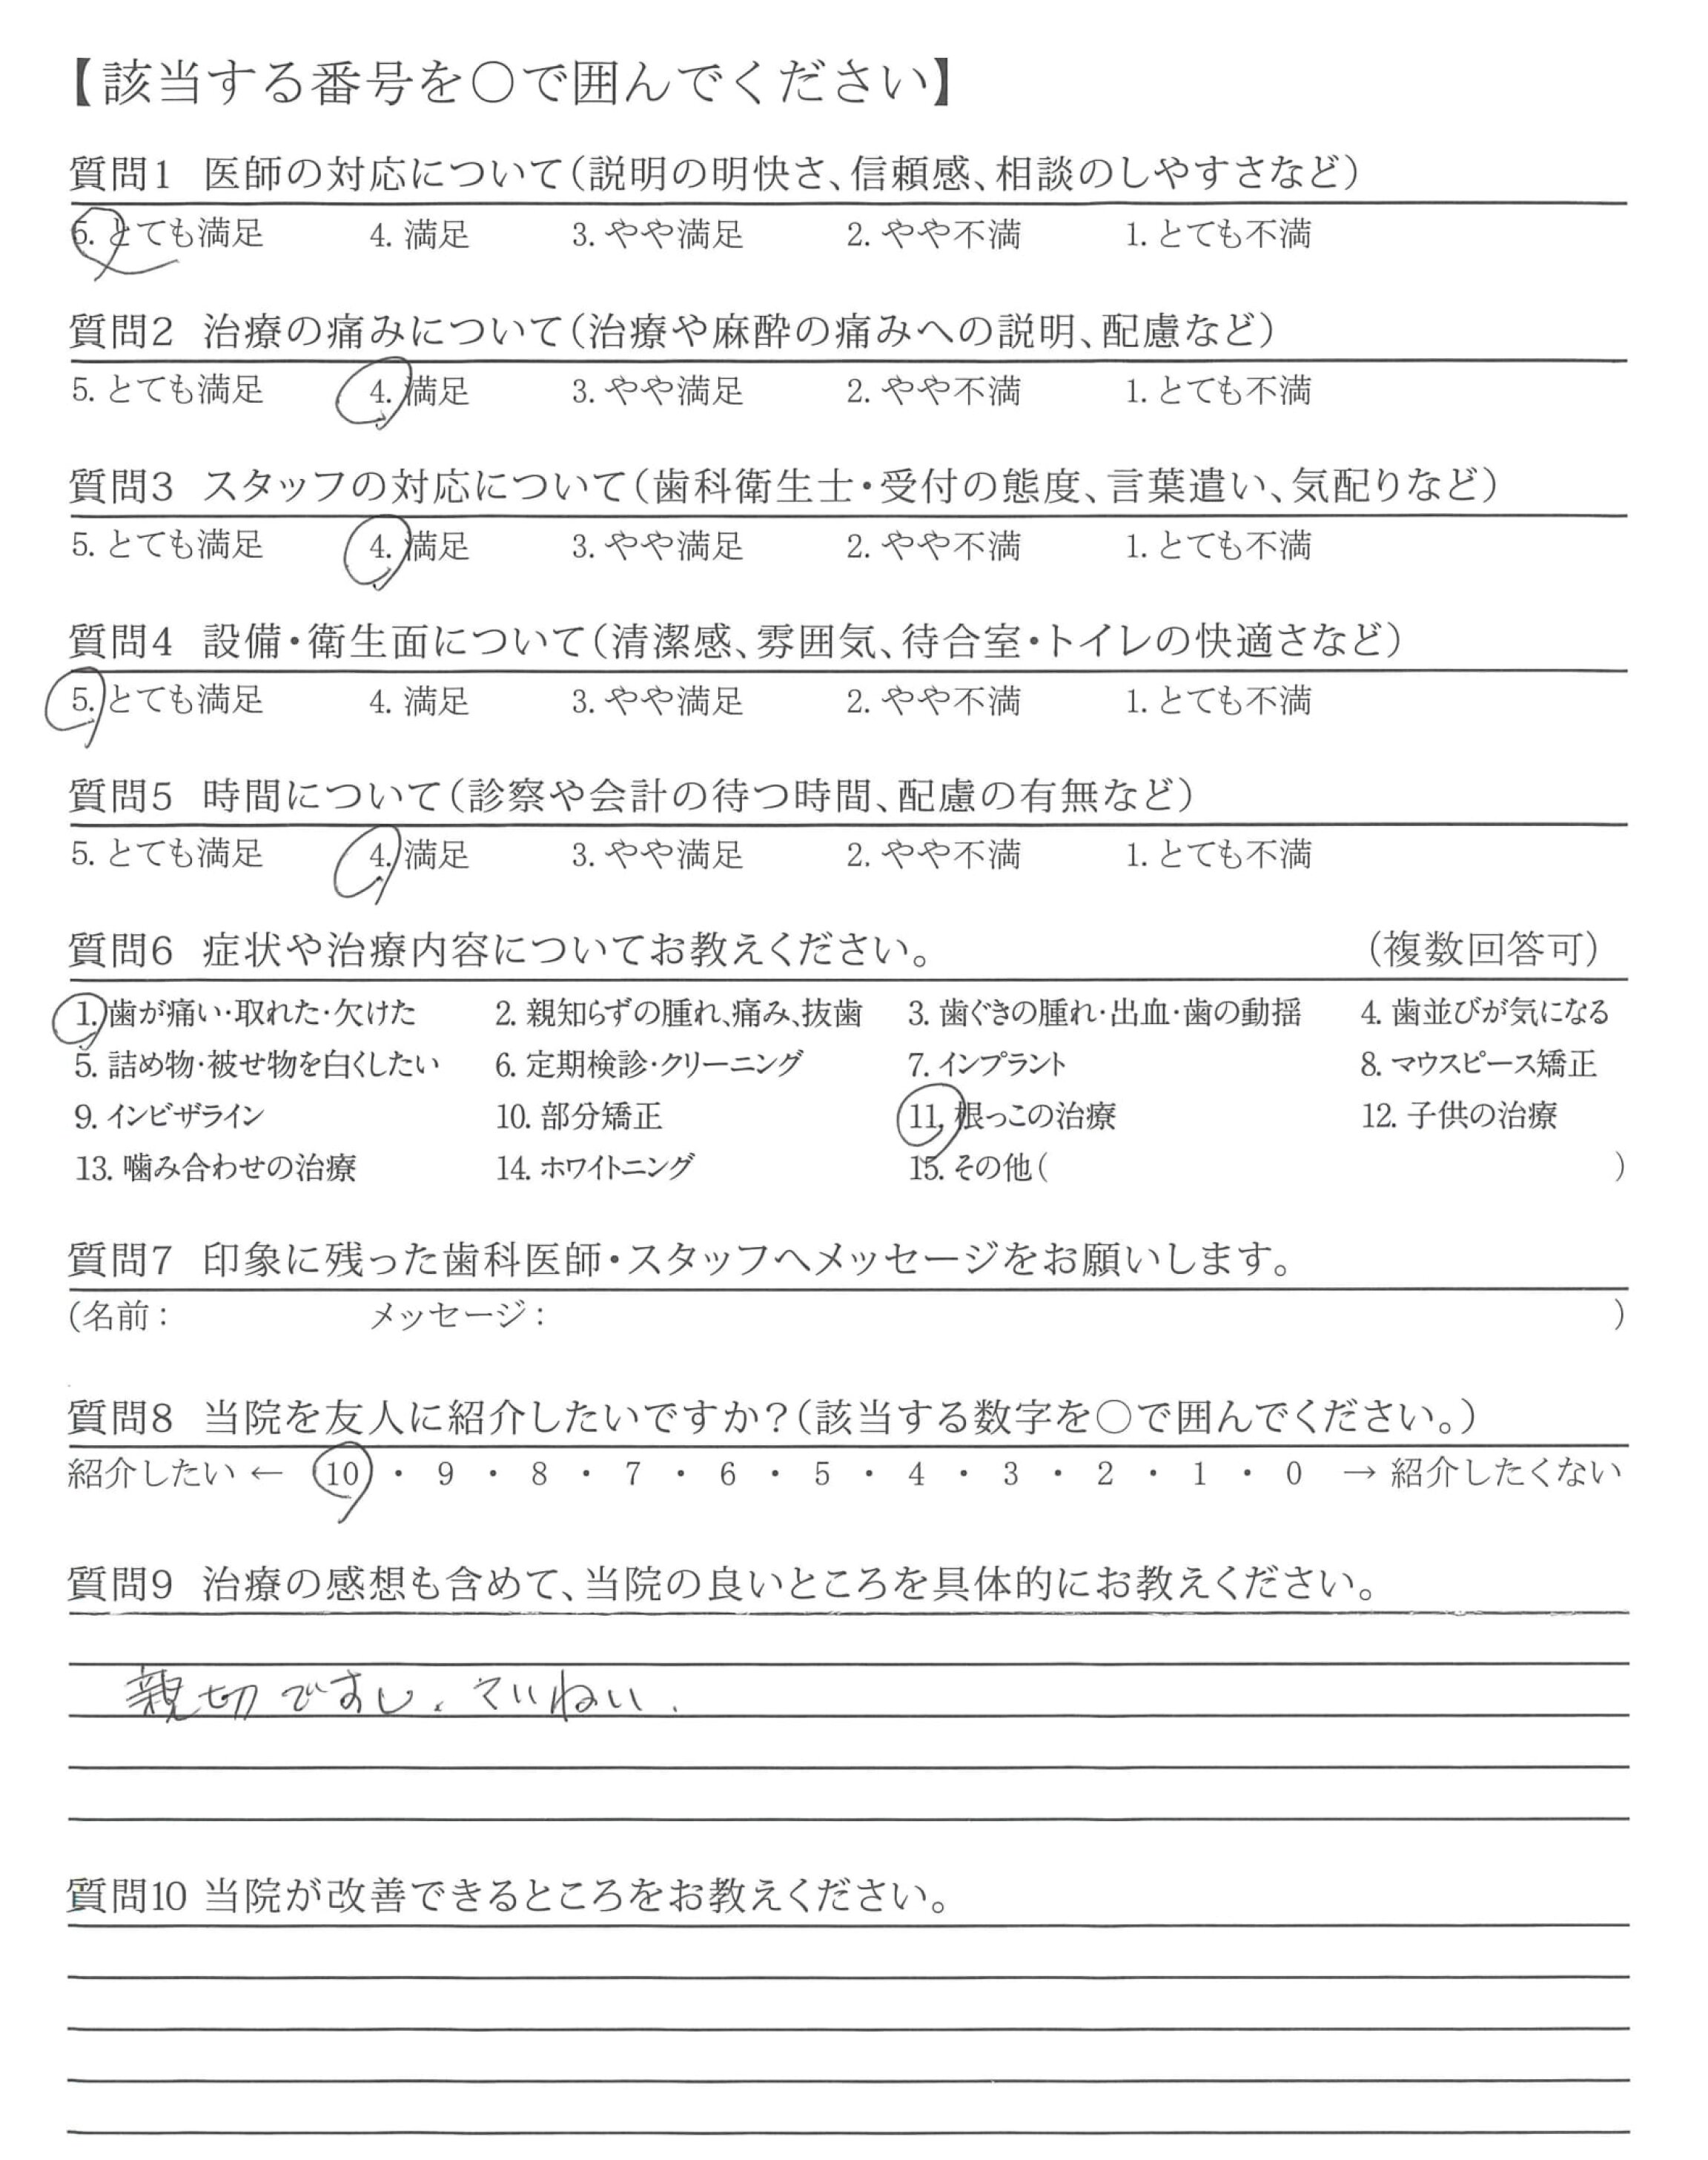 【該当する番号を○で囲んでください】
質問1 医師の対応について（説明の明快さ、信頼感、相談のしやすさなど）
5. とても満足 4. 満足 3. やや満足 2. やや不満 1. とても不満
質問2 治療の痛みについて（治療や麻酔の痛みへの説明、配慮など）
5. とても満足 4. 満足 3. やや満足 2. やや不満 1. とても不満
質問3 スタッフの対応について（歯科衛生士・受付の態度、言葉遣い、気配りなど）
5. とても満足 4. 満足 3. やや満足 2. やや不満 1. とても不満
質問4 設備・衛生面について（清潔感、雰囲気、待合室・トイレの快適さなど）
5. とても満足 4. 満足 3. やや満足 2. やや不満 1. とても不満
質問5 時間について（診察や会計の待つ時間、配慮の有無など）
5. とても満足 4. 満足 3. やや満足 2. やや不満 1. とても不満
質問6 症状や治療内容についてお教えください。 （複数回答可）
1. 歯が痛い・取れた・欠けた 2. 親知らずの腫れ、痛み、抜歯 3. 歯ぐきの腫れ・出血・歯の動揺 4. 歯並びが気になる
5. 詰め物・被せ物を白くしたい 6. 定期検診・クリーニング 7. インプラント 8. マウスピース矯正
9. インビザライン 10. 部分矯正 11. 根っこの治療 12. 子供の治療
13. 噛み合わせの治療 14. ホワイトニング 15. その他（ ）
質問7 印象に残った歯科医師・スタッフへメッセージをお願いします。
（名前： メッセージ： ）
質問8 当院を友人に紹介したいですか？（該当する数字を○で囲んでください。）
紹介したい ← 10 ・ 9 ・ 8 ・ 7 ・ 6 ・ 5 ・ 4 ・ 3 ・ 2 ・ 1 ・ 0 → 紹介したくない
質問9 治療の感想も含めて、当院の良いところを具体的にお教えください。
親切ですし、ていねい.
質問10 当院が改善できるところをお教えください。